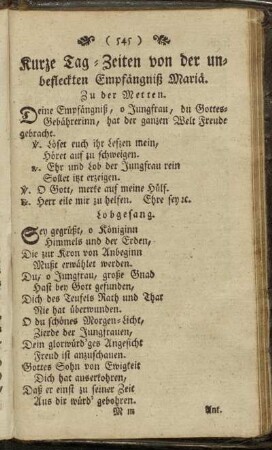 ( 545 )
Kurze Tag-Zeiten von der un-
befleckten Empfängniß Mariä.
Zu der Metten.
Deine Empfängniß, o Jungfrau, du Gottes-
Gebährerinn, hat der ganzen Welt Freude
gebracht.
℣. Löset euch ihr Lefzen mein,
Höret auf zu schweigen.
℟. Ehr und Lob der Jungfrau rein
Sollet itzt erzeigen.
℣. O Gott, merke auf meine Hülf.
℟. Herr eile mir zu helfen. Ehre sey ꝛc.
Lobgesang.
Sey gegrüßt, o Königinn
Himmels und der Erden,
Die zur Kron von Anbeginn
Mußt erwählet werden.
Du, o Jungfrau, große Gnad
Hast bey Gott gefunden,
Dich des Teufels Rath und That
Nie hat überwunden.
O du schönes Morgen-Licht,
Zierde der Jungfrauen,
Dein glorwürd'ges Angesicht
Freud ist anzuschauen.
Gottes Sohn von Ewigkeit
Dich hat auserkohren,
Daß er einst zu seiner Zeit
Aus dir würd' gebohren.
M m Ant.